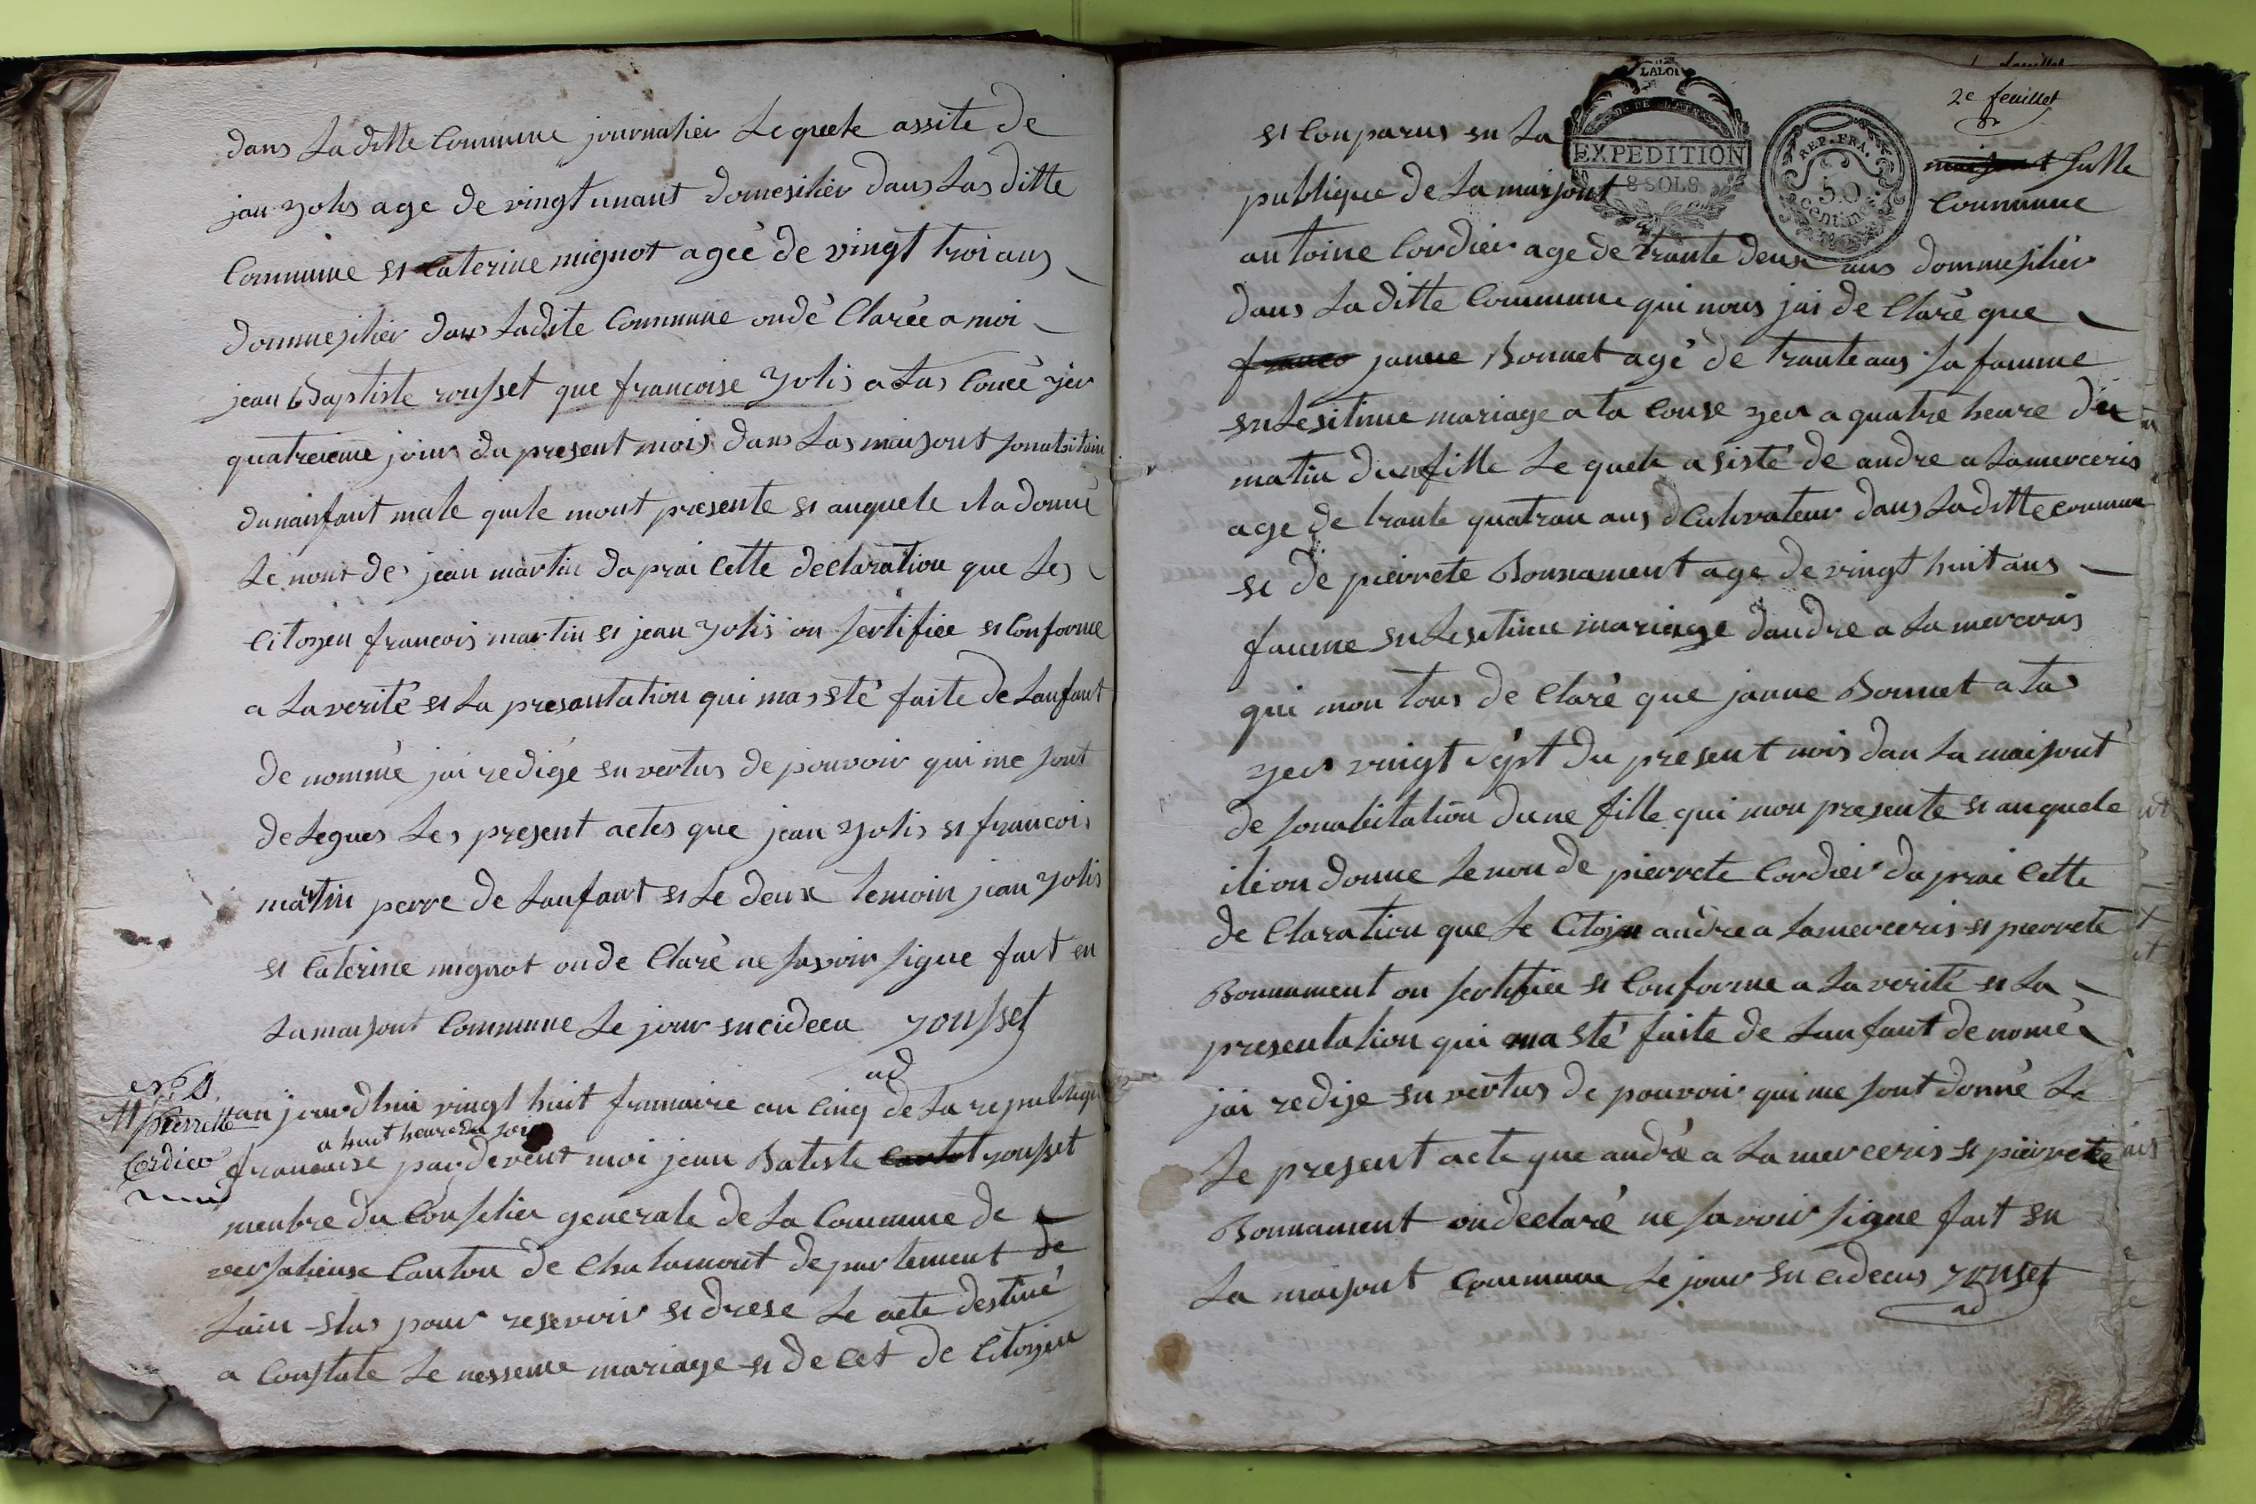 dans La ditte Commune journalier Le quele assite de
jan yolis age de vingt unant domesilier dans Las ditte
Commune et Caterine mignot agée de vingt troi ans
dommesilier dans Ladite Commune on dé Clarée a moi
jean Baptiste rousset que francoise yolis a Las Coucé yer
quatreieme jour du present mois dans Las maisont sonabitation
dunainfant male quile mont presente et auquele il a donné
Le nont de jean martin daprai Cette declaration que Les
Citoyen francois martin et jean yolis on sertifiée et Conforme
a La verité et La presantation qui mas eté faite de Lanfant
de nommé jai redigé en vertus de pouvoir qui me sont
delegues Les present actes que jean yolis et francois
martin perre de Lanfant et Le deux temoin jean yolis
et Caterine mignot on de Claré ne savoir signe fait en
La maisont Commune Le jour en cideca rousset
ad
Pierrette
Cordier
au jourdhui vingt huit frimaire an Cinq de La republique
a huit heure du soir
francaise par devent moi jean Batiste rousset
menbre du Consilier generale de La Commune de
versalieuse Canton de Chalamont departement de
Lain elus pour resevoir et drese Le acte destiné
a Constate Le nesseme mariage et de Cet de Citoyen
2e feuillet
LA LOI
EXPEDITION
8 SOLS
REP. FRA.
50
Centimes
et Conparus en La salle
publique de La maisont Commune
antoine Cordier age de trante deux ans dommesilier
dans La ditte Commune qui nous jai de Claré que
janne Bonnet agé de trante ans sa famme
en Lesitime mariage a ta Couse yer a quatre heure du
matin dun fille Le quele a sisté de andre a Lamerceris
age de trante quatran ans dCultivateur dans La ditte Commune
et de pierrete Bonnament age de vingt huit ans
famme en Lesitime mariage dandre a La merceris
qui mon tous de Claré que janne Bonnet a tas
yer vingt sept du present mois dan La maisont
de sonabitation dune fille qui mon presente et auquele
ile on donne Le non de pierrete Cordier daprai Cette
de Claration que Le Citoyen andre a Lamerceris et pierrete
Bonnament on sertifiée et Conforme a La verité et La
presentation qui ma eté faite de Lanfant de nomé
jai redige en vertus de pouvoir qui me sont donné Le
Le present acte que andré a La merceris et pierrete
Bonnament on declaré ne savoir signe fait en
La maisont Commune Le jour en cidecus rousset
ad